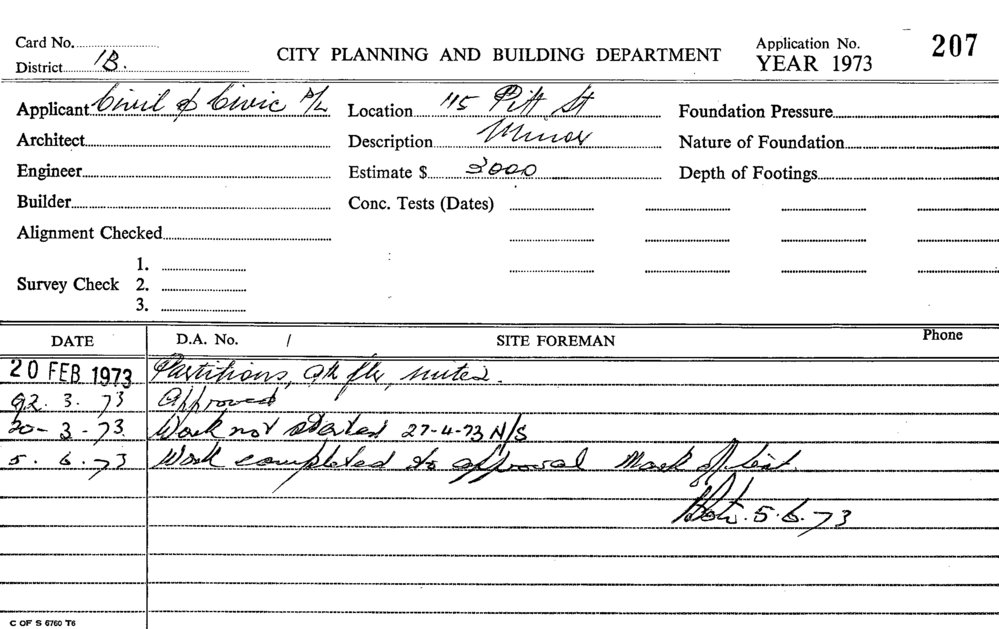 Card No.
CITY PLANNING AND BUILDING DEPARTMENT
Application No. 207
District 1B.
YEAR 1973
Applicant Civil & Civic P/L Location 115 Pitt St Foundation Pressure
Architect Description Minor Nature of Foundation
Engineer Estimate $ 3000 Depth of Footings
Builder Conc. Tests (Dates)
Alignment Checked
1.
Survey Check 2.
3.
DATE D.A. No. / SITE FOREMAN Phone
20 FEB 1973 Partitions, 9th flr, noted.
3. 73 Approved
20-3-73. Work not started 27-4-73 N/S
5. 6. 73 Work completed to approval Mark off list.
5.6.73
C OF S 6760 T6